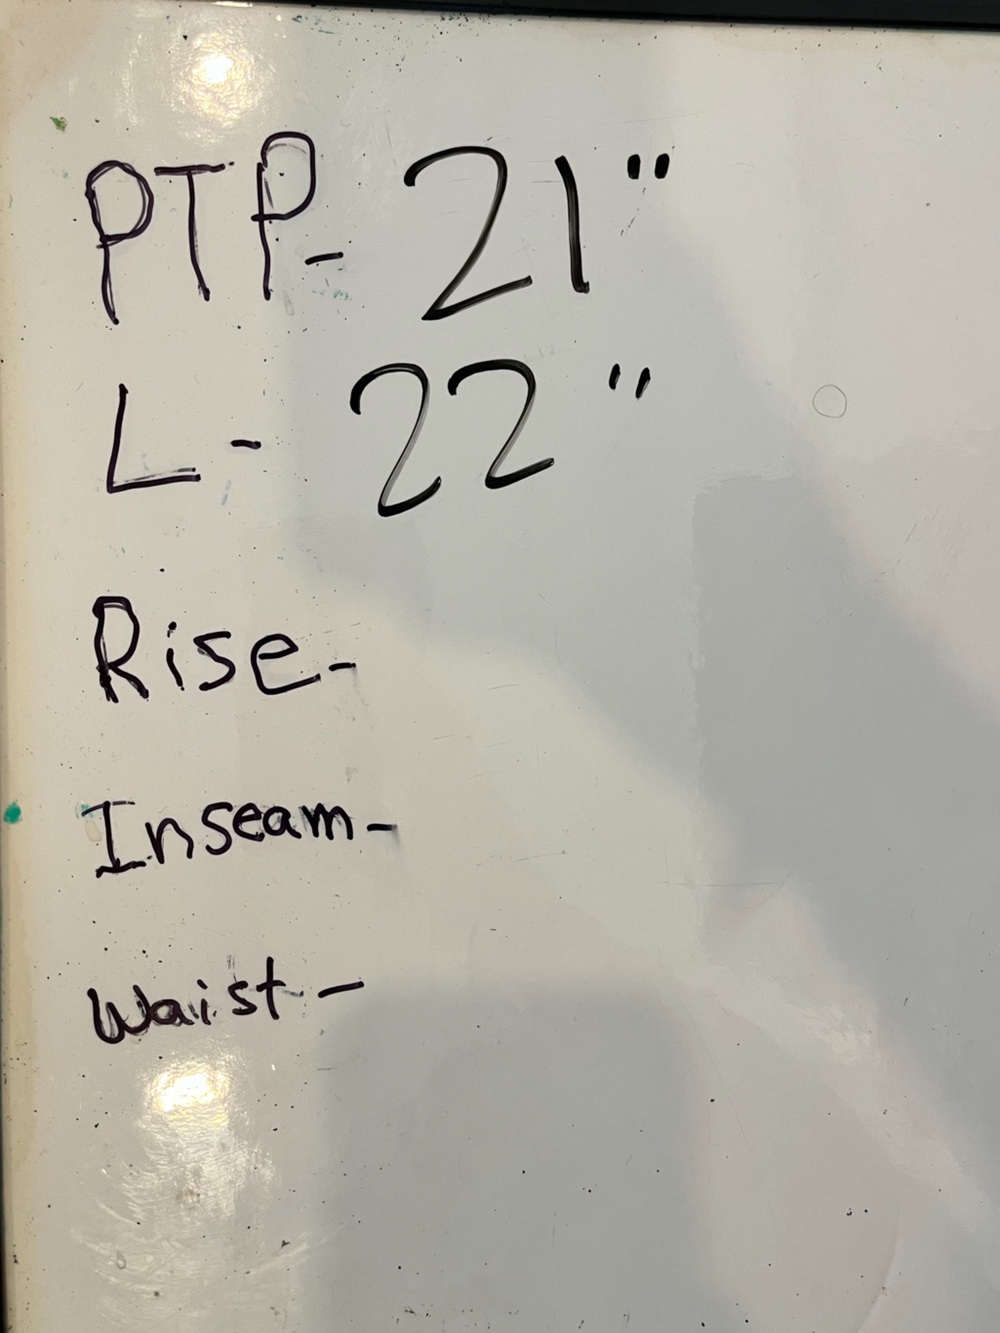 PTP- 21"
L - 22"
Rise-
Inseam-
Waist -